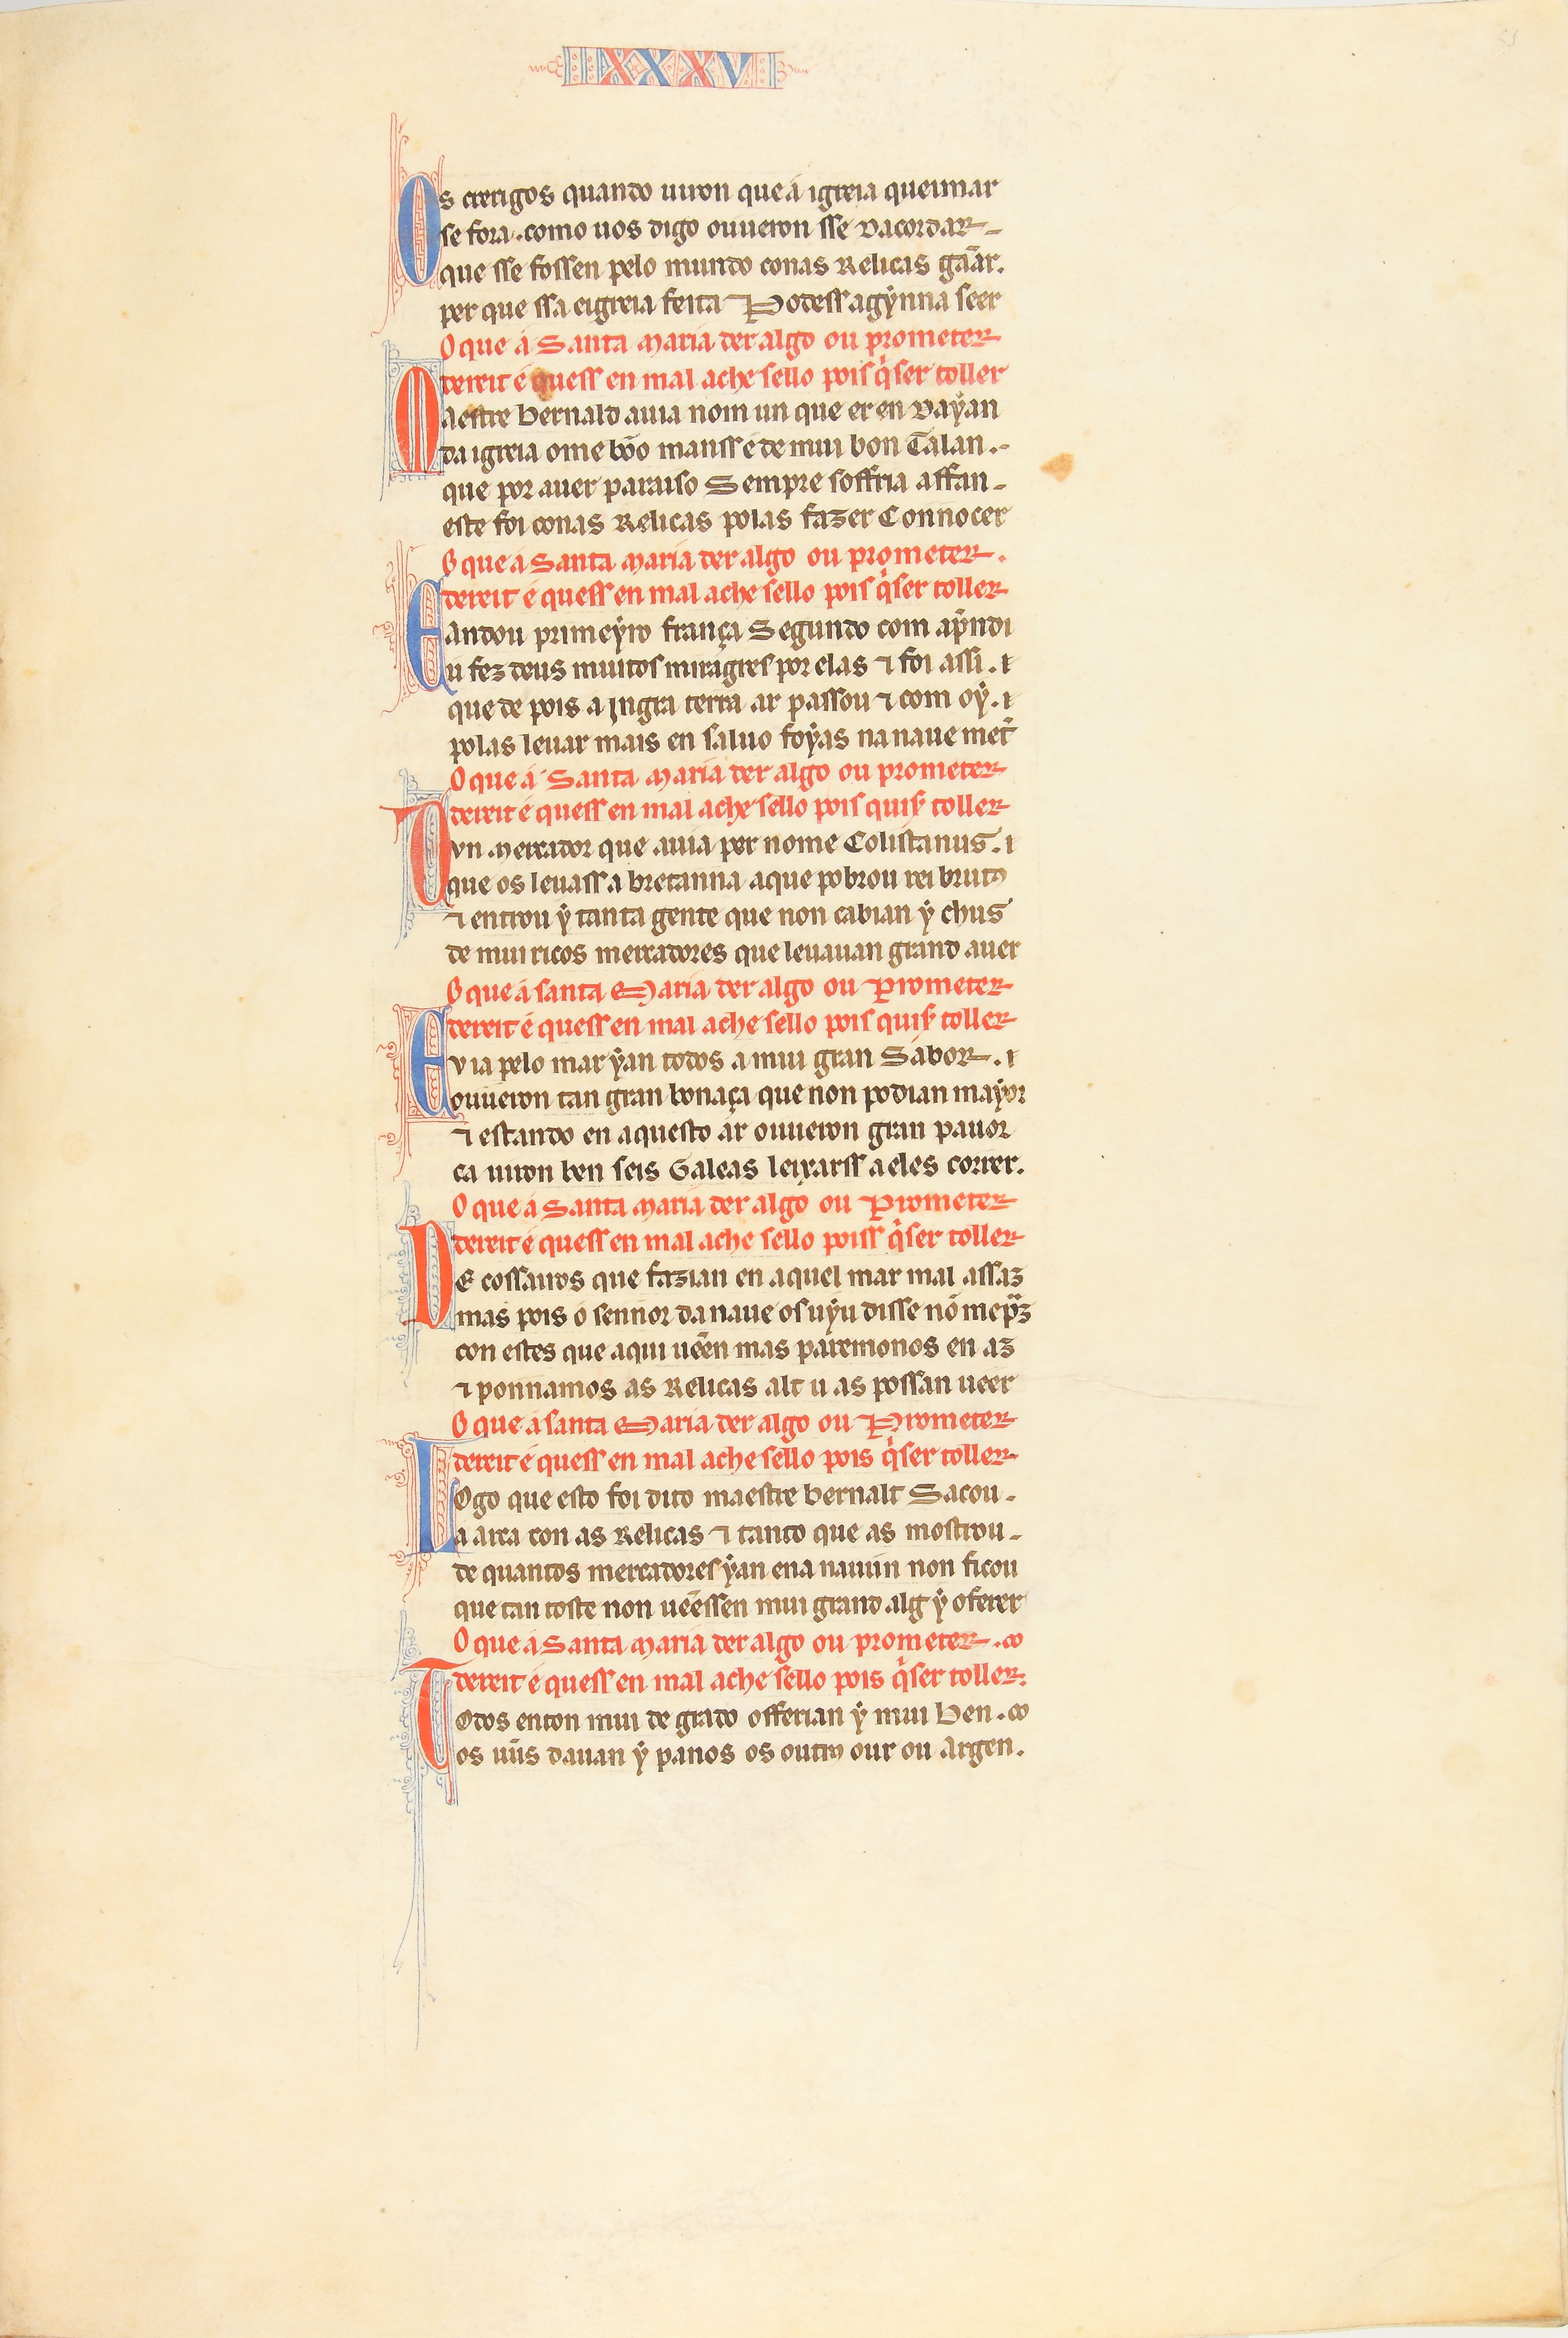 XXXVI
Os crerigos quando uiron que á igreia queimar
se fora. como uos digo ouueron sse dacordar
que sse fossen pelo mundo conas Relicas gãar.
per que ssa eigreia feita Podess agỹnna seer
O que á Santa Maria der algo ou prometer
dereit é quess en mal ache sello pois q̇ser toller
Maestre bernald auia nom un que er en dayan
da igreia ome bõo mansse de mui bon Talan.
que por auer paraiso Sempre soffria affan
este foi conas Relicas polas fazer Connocer
O que á Santa Maria der algo ou prometer.
dereit é quess en mal ache sello pois q̇ser toller
E andou primeyro frança Segundo com ap̃ndi
u fez deus muitos miragres por elas ⁊ foi assi.
que de pois a Jngra terra ar passou ⁊ com oẏ.
polas leuar mais en saluo foyas na naue met̃
O que á Santa Maria der algo ou prometer
dereit é quess en mal ache sello pois quis̃ toller
Dun Mercador que auia per nome Colistanus.
que os leuass a bretanna aque pobrou rei bruto
⁊ entrou ẏ tanta gente que non cabian ẏ chus
de mui ricos mercadores que leuauan grand auer
O que á santa Maria der algo ou Prometer
dereit é quess en mal ache sello pois quis̃ toller
E u ia pelo mar ẏan todos a mui gran Sabor.
ouueron tan gran bonaça que non podian mayor
⁊ estando en aquesto ar ouueron gran pauor
ca uiron ben seis Galeas leixarss a eles correr.
O que á Santa Maria der algo ou Prometer
dereit é quess en mal ache sello poiss q̇ser toller
De cossairos que fazian en aquel mar mal assaz
mas pois o sennor da naue os uẏu disse nõ me p̃z
con estes que aqui uẽen mas paremonos en az
⁊ ponnamos as Relicas alt u as possan ueer
O que á santa Maria der algo ou Prometer
dereit é quess en mal ache sello pois q̇ser toller
Logo que esto foi dito maestre bernalt Sacou.
a arca con as Relicas ⁊ tanto que as mostrou
de quantos mercadores ẏan ena nauun non ficou
que tan toste non uẽessen mui grand alg ẏ oferer
O que á Santa Maria der algo ou prometer.
dereit é quess en mal ache sello pois q̇ser toller.
Todos enton mui de grado offerian ẏ mui ben.
os ũus dauan ẏ panos os outro our ou Argen.